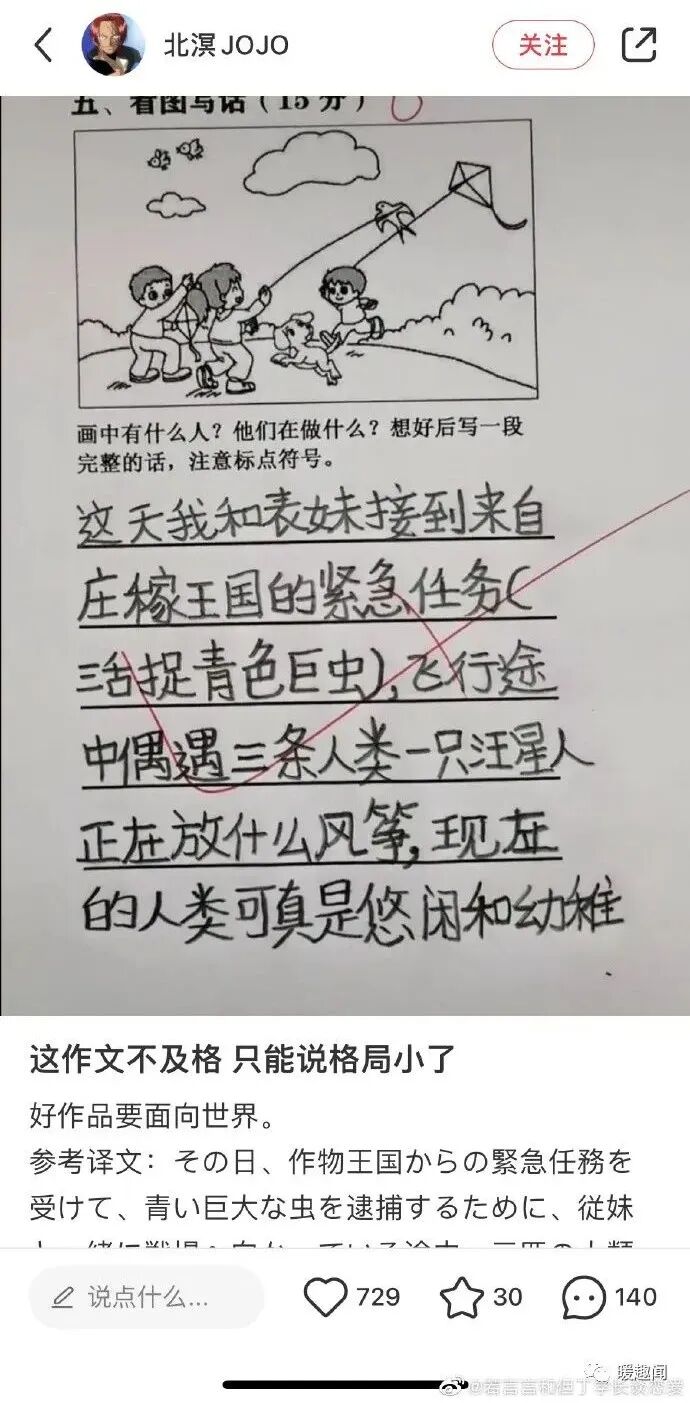 北溟JOJO
关注
五、看图写话(15分)
画中有什么人?他们在做什么?想好后写一段
完整的话,注意标点符号。
这天我和表妹接到来自
庄稼王国的紧急任务(
活捉青色巨虫),飞行途
中偶遇三条人类一只汪星人
正在放什么风筝,现在
的人类可真是悠闲和幼稚
这作文不及格 只能说格局小了
好作品要面向世界。
参考译文:その日、作物王国からの緊急任務を
受けて、青い巨大な虫を逮捕するために、従妹
说点什么...
729
30
140
暖趣闻